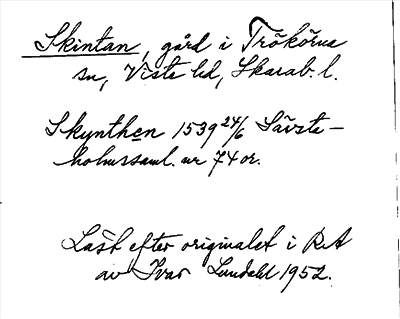 Skintan, gård i Trökörna
sn, Viste hd, Skarab. l.
Skynthen 1539 24/6 Sävste-
holmssaml. nr 74 or.
Läst efter originalet i RA
av Ivar Lundahl 1952.